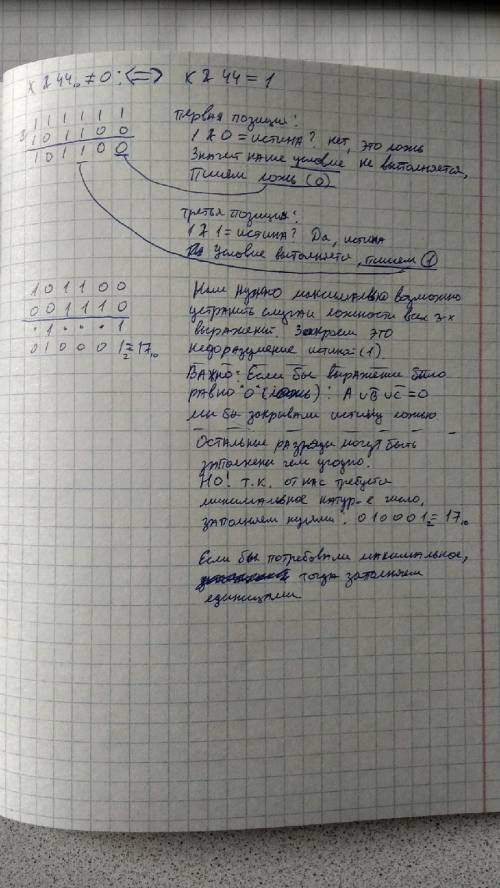 x & 44₁₀ ≠ 0 : <=> x & 44 = 1
1 1 1 1 1 1
& 1 0 1 1 0 0
1 0 1 1 0 0
первая позиция:
1 & 0 = истина? нет, это ложь
Значит наше условие не выполняется,
Пишем ложь (0)
третья позиция:
1 & 1 = истина? Да, истина
Условие выполняется, пишем (1)
1 0 1 1 0 0
0 0 1 1 1 0
· 1 · · · 1
0 1 0 0 0 1₂ = 17₁₀
Нам нужно максимально возможно
устранить случаи ложности всех 3-х
выражений. Закроем это
недоразумение истиной (1).
Важно: Если бы выражение было
равно "0" (ложь): A ∪ B ∪ C = 0
мы бы закрывали истину ложью
Остальные разряды могут быть
заполнены чем угодно.
НО! т.к. от нас требуется
минимальное натур-е число,
заполняем нулями: 0 1 0 0 0 1₂ = 17₁₀
Если бы потребовали максимальное,
тогда заполняем
единицами